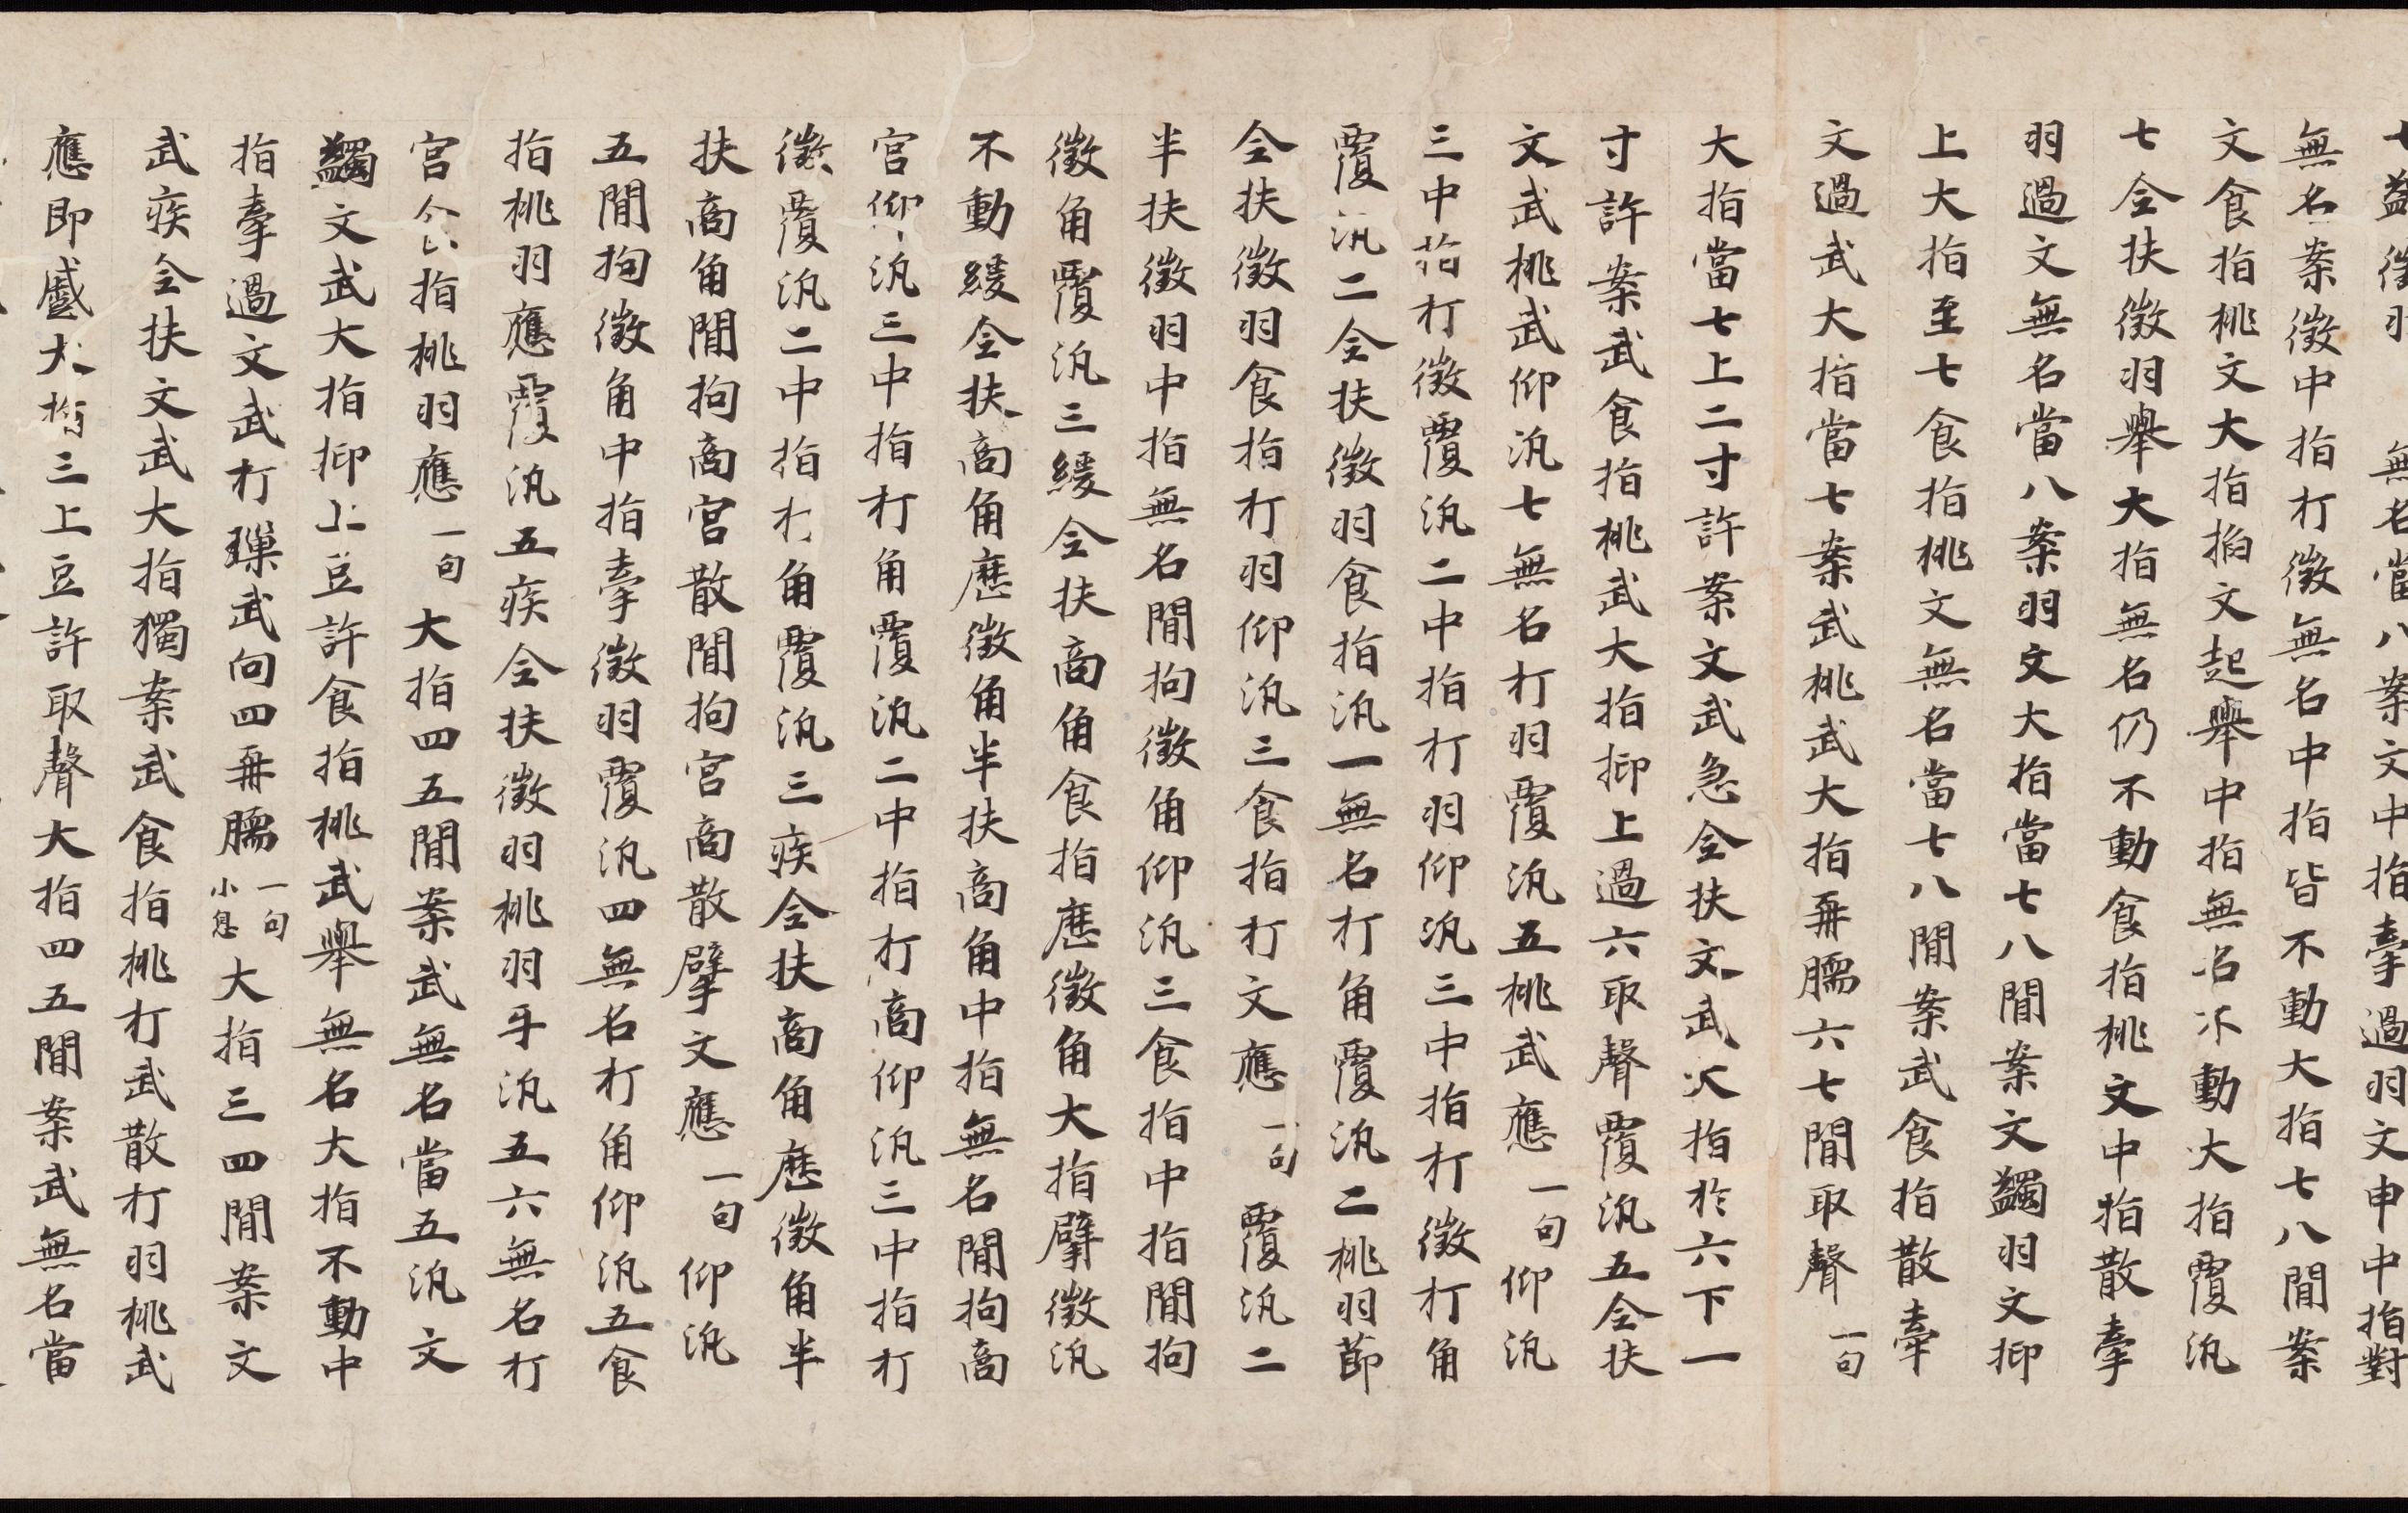 徵羽無名當八案文中指牽過羽文申中指對
無名案徵中指打徵無名中指皆不動大指七八間案
文食指桃文大指掐文起舉中指無名不動大指覆汎
七全扶徵羽舉大指無名仍不動食指桃文中指散牽
羽過文無名當八案羽文大指當七八間案文蠲羽文抑
上大指至七食指桃文無名當七八間案武食指散牽
文過武大指當七案武桃武大指再臑六七間取聲一句
大指當七上二寸許案文武急全扶文武大指於六下一
寸許案武食指桃武大指抑上過六取聲覆汎五全扶
文武桃武仰汎七無名打羽覆汎五桃武應一句仰汎
三中指打徵覆汎二中指打羽仰汎三中指打徵打角
覆汎二全扶徵羽食指汎一無名打角覆汎二桃羽節
全扶徵羽食指打羽仰汎三食指打文應一句覆汎二
半扶徵羽中指無名間拘徵角仰汎三食指中指間拘
徵角覆汎三緩全扶商角食指應徵角大指擘徵汎
不動緩全扶商角應徵角半扶商角中指無名間拘商
宮仰汎三中指打角覆汎二中指打商仰汎三中指打
徵覆汎二中指打角覆汎三疾全扶商角應徵角半
扶商角間拘商宮散間拘宮商散擘文應一句仰汎
五間拘徵角中指牽徵羽覆汎四無名打角仰汎五食
指桃羽應覆汎五疾全扶徵羽桃羽牙汎五六無名打
宮食指桃羽應一句大指四五間案武無名當五汎文
蠲文武大指抑上豆許食指桃武舉無名大指不動中
指牽過文武打㻫武向四再臑一句小息大指三四間案文
武疾全扶文武大指獨案武食指桃打武散打羽桃武
應即蹙大指三上豆許取聲大指四五間案武無名當